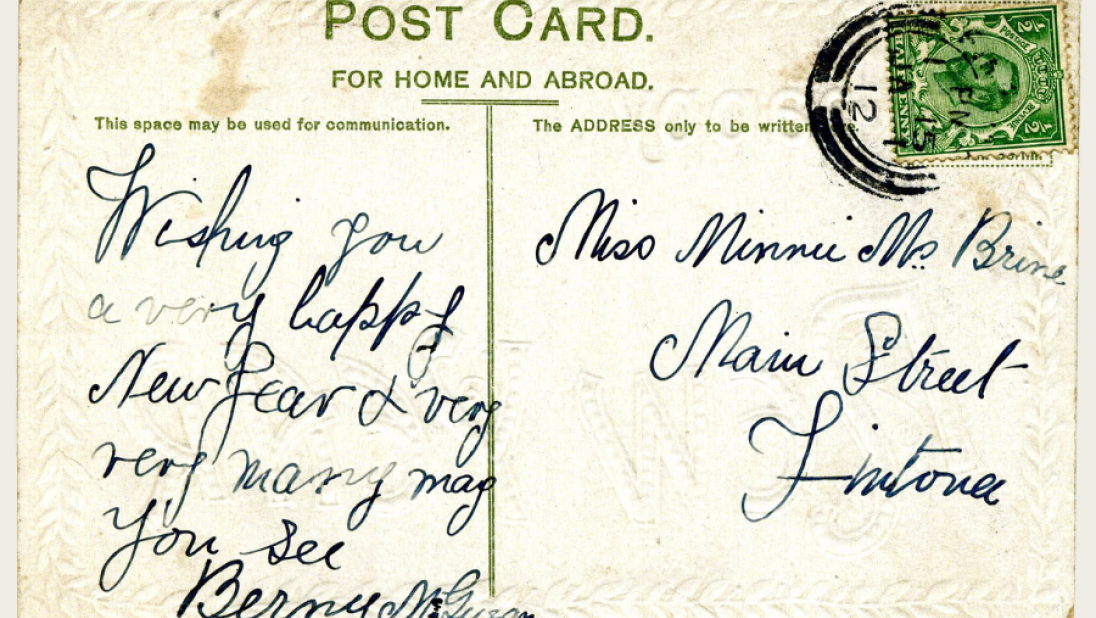 POST CARD.
FOR HOME AND ABROAD.
This space may be used for communication.
The ADDRESS only to be written
Wishing you
a very happy
New Year & very
very many may
You see
Bernie
Miss Minnie Mc Brine
Main Street
Fintona
POSTAGE
REVENUE
1/2
1/2
JA 1
12